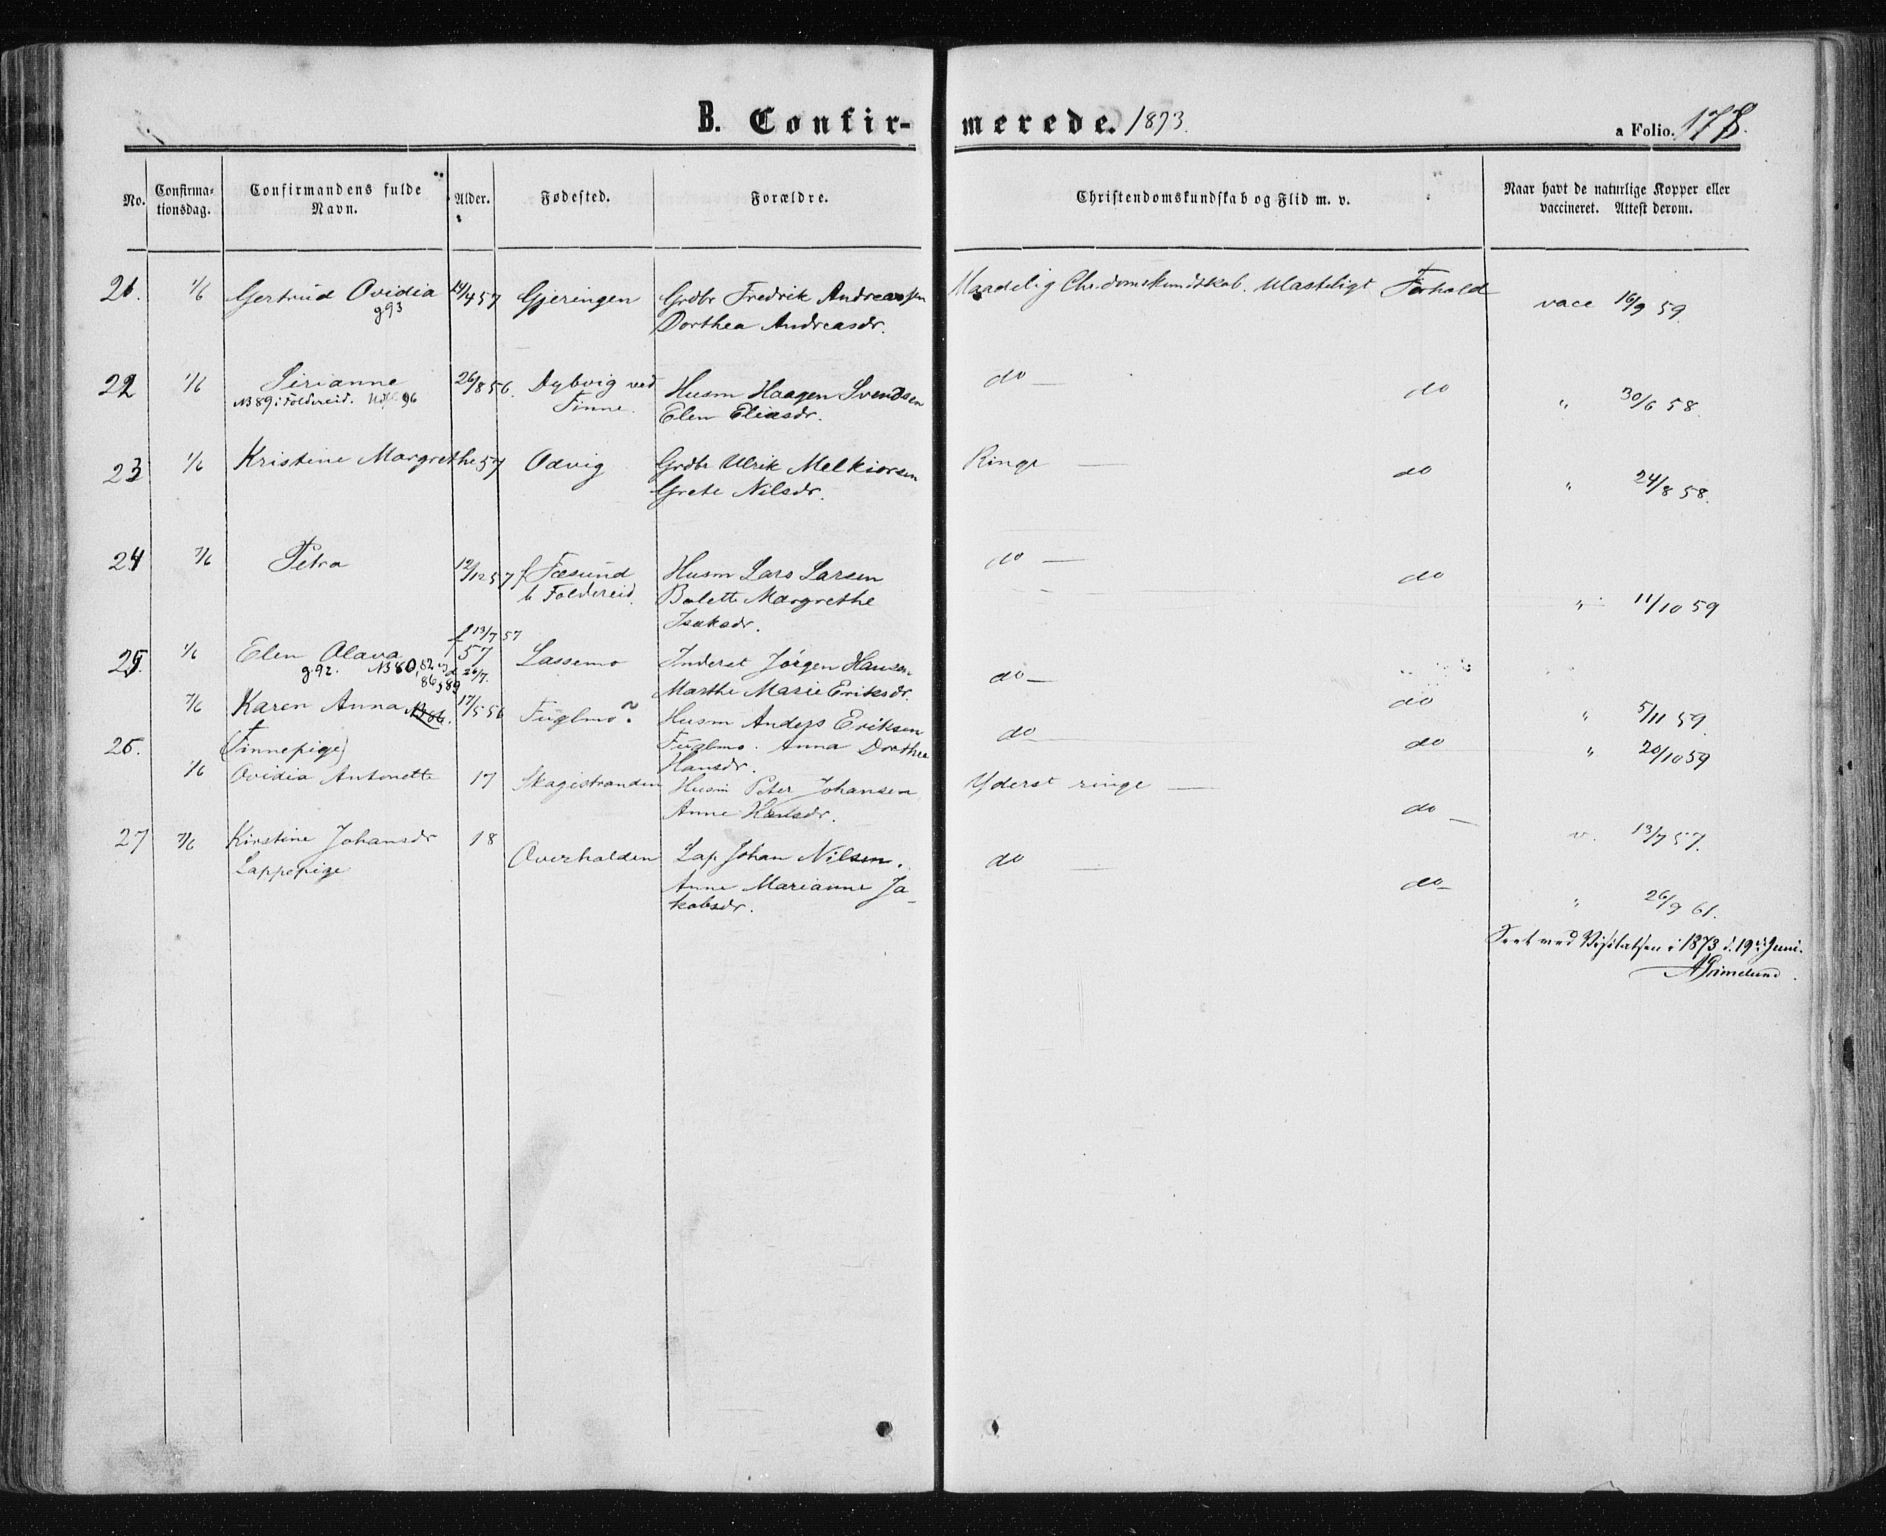 B. Confir-merede. 1873.
a Folio. 178.
No.
Confirma-
tionsdag.
Confirmandens fulde
Navn.
Alder.
Fødested.
Forældre.
Christendomskundskab og Flid m. v.
Naar havt de naturlige Kopper eller
vaccineret. Attest derom.
21. 1/6 Gertrud Ovidia 14/4 57 Gjeringen Grdbr Fredrik Andreassen Maadelig Chr.domskundskab. Ulasteligt Forhold vacc 16/9 59.
g93 Dorthea Andreasdr.
22 1/6 Sirianne 26/8 56. Dybvig ved Husm Haagen Svendsen do — do " 30/6 58.
NB 89 i Foldereid. 96 Finne. Elen Eliasdr.
23 1/6 Kristine Margrethe 57 Odvig Grdbr Ulrik Melkiorsen Ringe — do " 24/8 58.
Grete Nilsdr.
24 1/6 Petra 12/12 57 f Fæsund Husm Lars Larsen do — do " 11/10 59
b Foldereid. Bolette Margrethe
Isaksdr.
f 13/7 57
25. 1/6 Elen Olava 57 Lassemo Inderst Jørgen Hansen do — do " 5/11 59.
g92. NB 80, 82 26/7. Marthe Marie Eriksdr.
86, 89
1/6 Karen Anna NB 86. 17/5 56 Fuglmo ? Husm Anders Eriksen do — do " 20/10 59
26. (Finnepige) Fuglmo. Anna Dorthea
Hansdr.
1/6 Ovidia Antonette 17 Skagistranden Husm Peter Johansen Yderst ringe — do — v. 13/7 57.
Anne Hansdr.
27 1/6 Kirstine Johansdr 18 Overhalden Lap Johan Nilsen. do do — " 26/9 61.
Lappepige Anne Marianne Ja-
kobsdr.
Seet ved Visitatsen i 1873 d. 19de Juni.
AGrimelund.